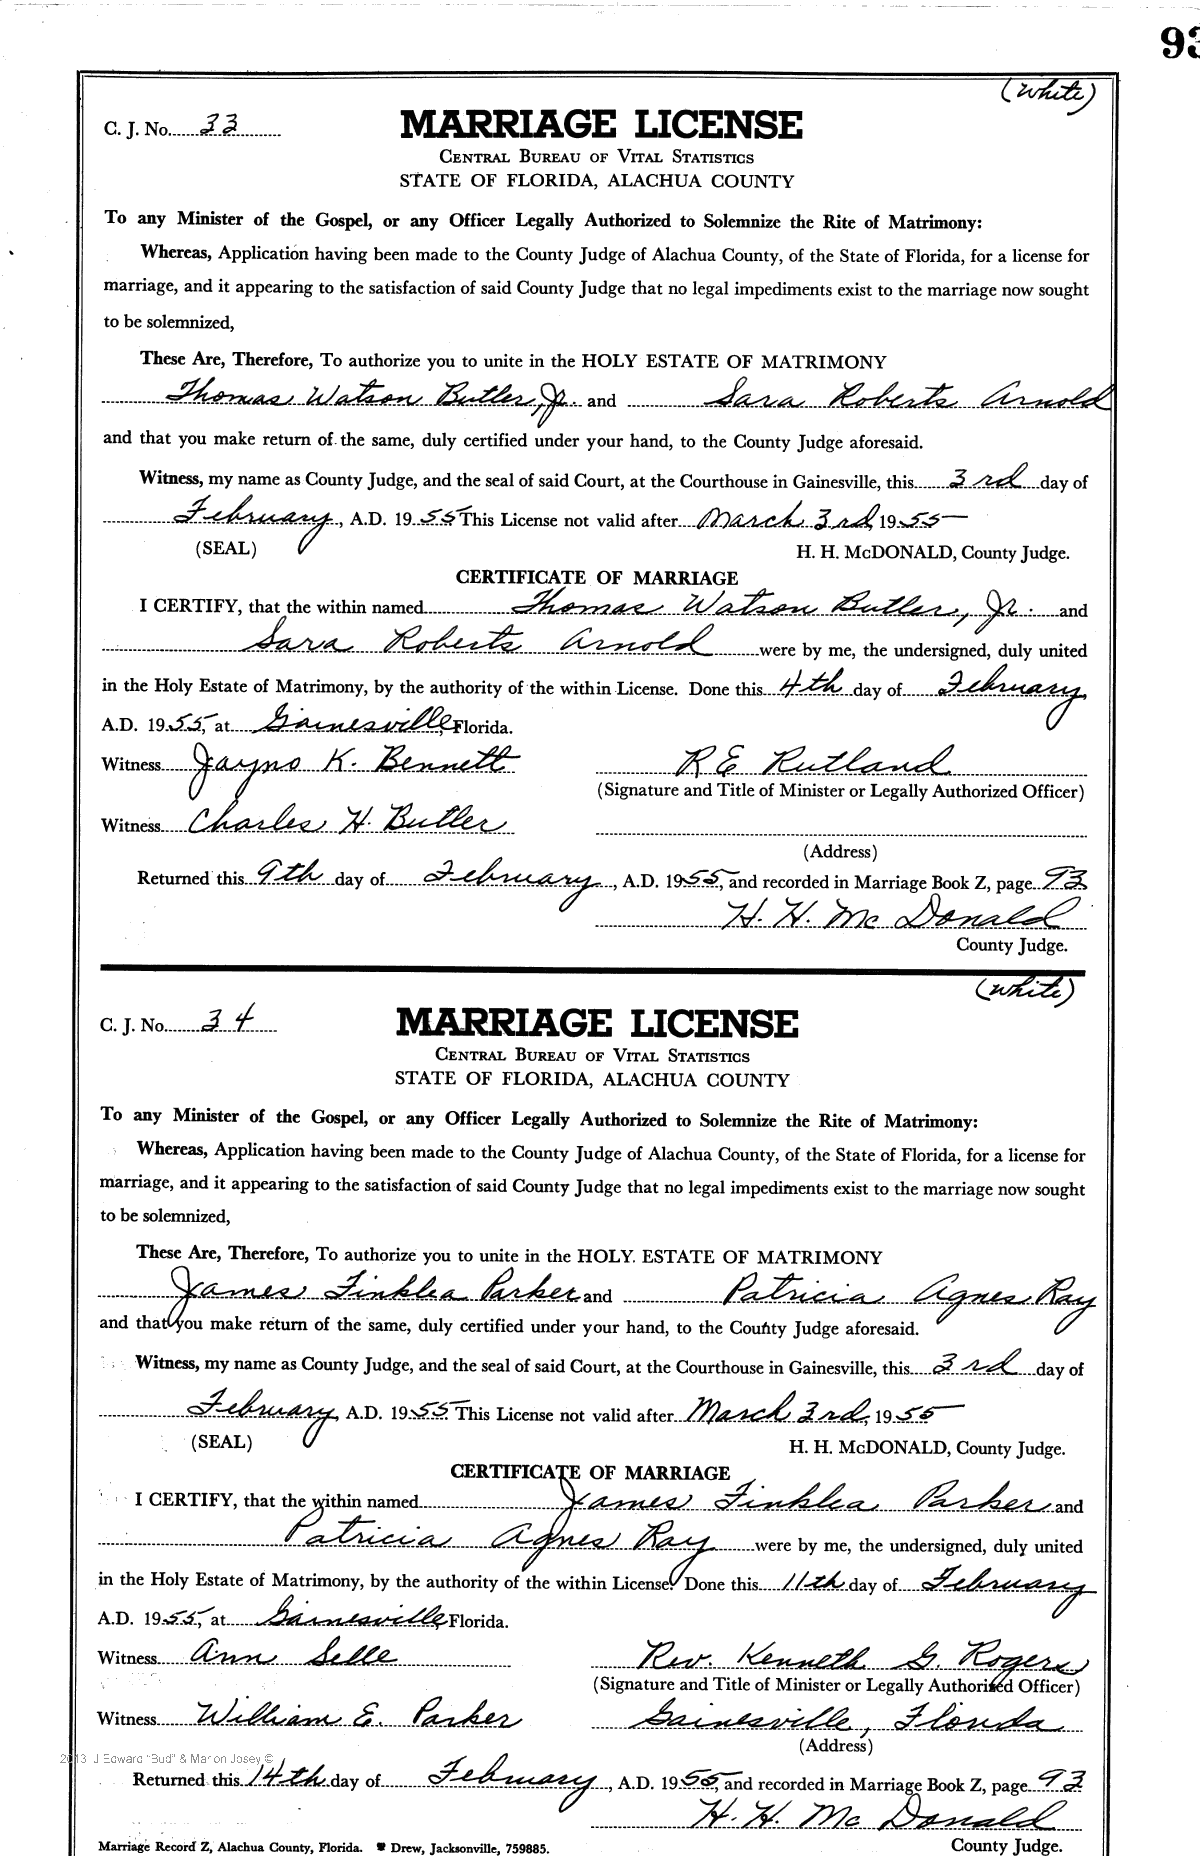 93
(White)
C. J. No. 33
MARRIAGE LICENSE
CENTRAL BUREAU OF VITAL STATISTICS
STATE OF FLORIDA, ALACHUA COUNTY
To any Minister of the Gospel, or any Officer Legally Authorized to Solemnize the Rite of Matrimony:
Whereas, Application having been made to the County Judge of Alachua County, of the State of Florida, for a license for
marriage, and it appearing to the satisfaction of said County Judge that no legal impediments exist to the marriage now sought
to be solemnized,
These Are, Therefore, To authorize you to unite in the HOLY ESTATE OF MATRIMONY
Thomas Watson Butler, Jr. and Sara Roberts Arnold
and that you make return of the same, duly certified under your hand, to the County Judge aforesaid.
Witness, my name as County Judge, and the seal of said Court, at the Courthouse in Gainesville, this 3rd day of
February, A.D. 1955 This License not valid after March 3rd, 1955
(SEAL) H. H. McDONALD, County Judge.
CERTIFICATE OF MARRIAGE
I CERTIFY, that the within named Thomas Watson Butler, Jr. and
Sara Roberts Arnold were by me, the undersigned, duly united
in the Holy Estate of Matrimony, by the authority of the within License. Done this 4th day of February
A.D. 1955, at Gainesville, Florida.
Witness Jayno K. Bennett R E Rutland
(Signature and Title of Minister or Legally Authorized Officer)
Witness Charles H. Butler
(Address)
Returned this 9th day of February, A.D. 1955, and recorded in Marriage Book Z, page 93
H. H. McDonald
County Judge.
(White)
C. J. No. 34
MARRIAGE LICENSE
CENTRAL BUREAU OF VITAL STATISTICS
STATE OF FLORIDA, ALACHUA COUNTY
To any Minister of the Gospel, or any Officer Legally Authorized to Solemnize the Rite of Matrimony:
Whereas, Application having been made to the County Judge of Alachua County, of the State of Florida, for a license for
marriage, and it appearing to the satisfaction of said County Judge that no legal impediments exist to the marriage now sought
to be solemnized,
These Are, Therefore, To authorize you to unite in the HOLY. ESTATE OF MATRIMONY
James Finklea Parker and Patricia Agnes Ray
and that you make return of the same, duly certified under your hand, to the County Judge aforesaid.
Witness, my name as County Judge, and the seal of said Court, at the Courthouse in Gainesville, this 3rd day of
February, A.D. 1955. This License not valid after March 3rd, 1955
(SEAL) H. H. McDONALD, County Judge.
CERTIFICATE OF MARRIAGE
I CERTIFY, that the within named James Finklea Parker and
Patricia Agnes Ray were by me, the undersigned, duly united
in the Holy Estate of Matrimony, by the authority of the within License. Done this 11th day of February
A.D. 1955, at Gainesville, Florida.
Witness Ann Selle Rev. Kenneth G. Rogers
(Signature and Title of Minister or Legally Authorized Officer)
Witness William E. Parker Gainesville, Florida
(Address)
2013 J Edward "Bud" & Marion Josey ©
Returned this 14th day of February, A.D. 1955, and recorded in Marriage Book Z, page 93
H. H. McDonald
Marriage Record Z, Alachua County, Florida. Drew, Jacksonville, 759885. County Judge.